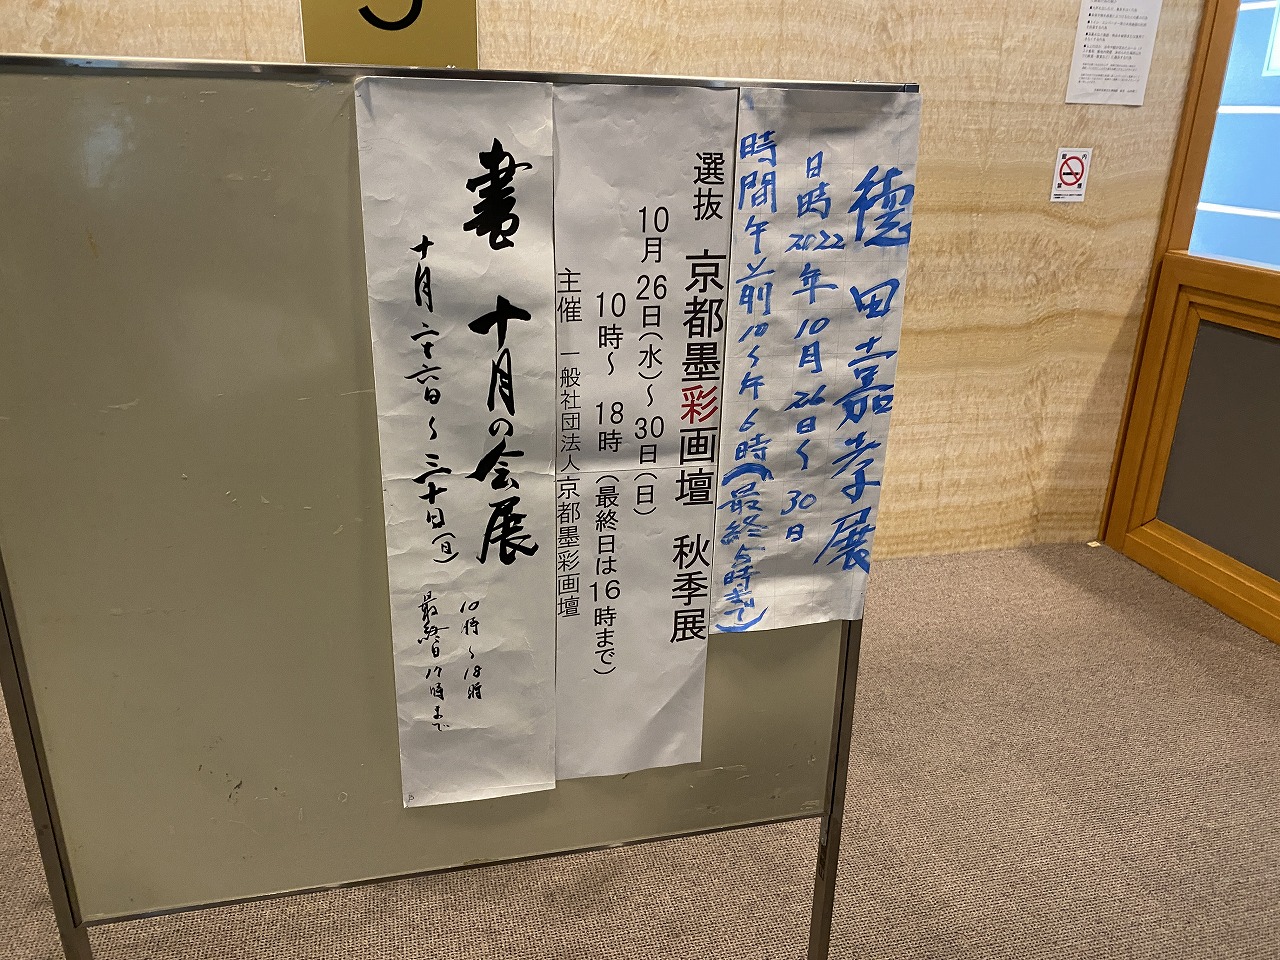 徳田嘉孝展
日時2022年10月26日〜30日
時間午前10〜午後6時(最終5時まで)
選抜 京都墨彩画壇 秋季展
10月26日(水)〜30日(日)
10時〜 18時 (最終日は16時まで)
主催 一般社団法人京都墨彩画壇
書 十月の会展
十月二十六日〜三十日(日)
10時〜18時
最終日17時まで
館内
禁煙